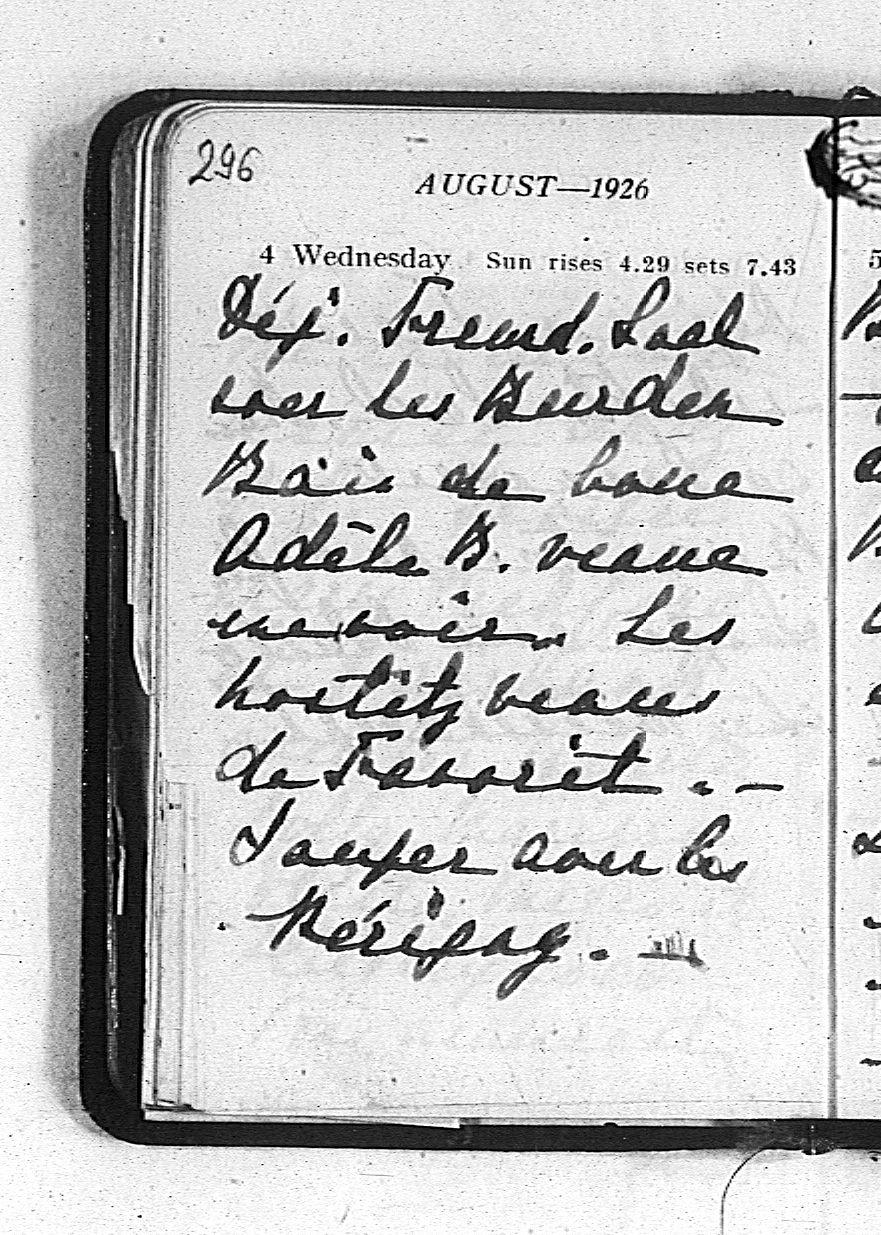 296
AUGUST—1926
4 Wednesday Sun rises 4.29 sets 7.43
Déj. Freund. Saal
avec les Burden
Bain de boue
Adèle B. venue
me voir. Les
venus
de Favorit. —
Souper avec les